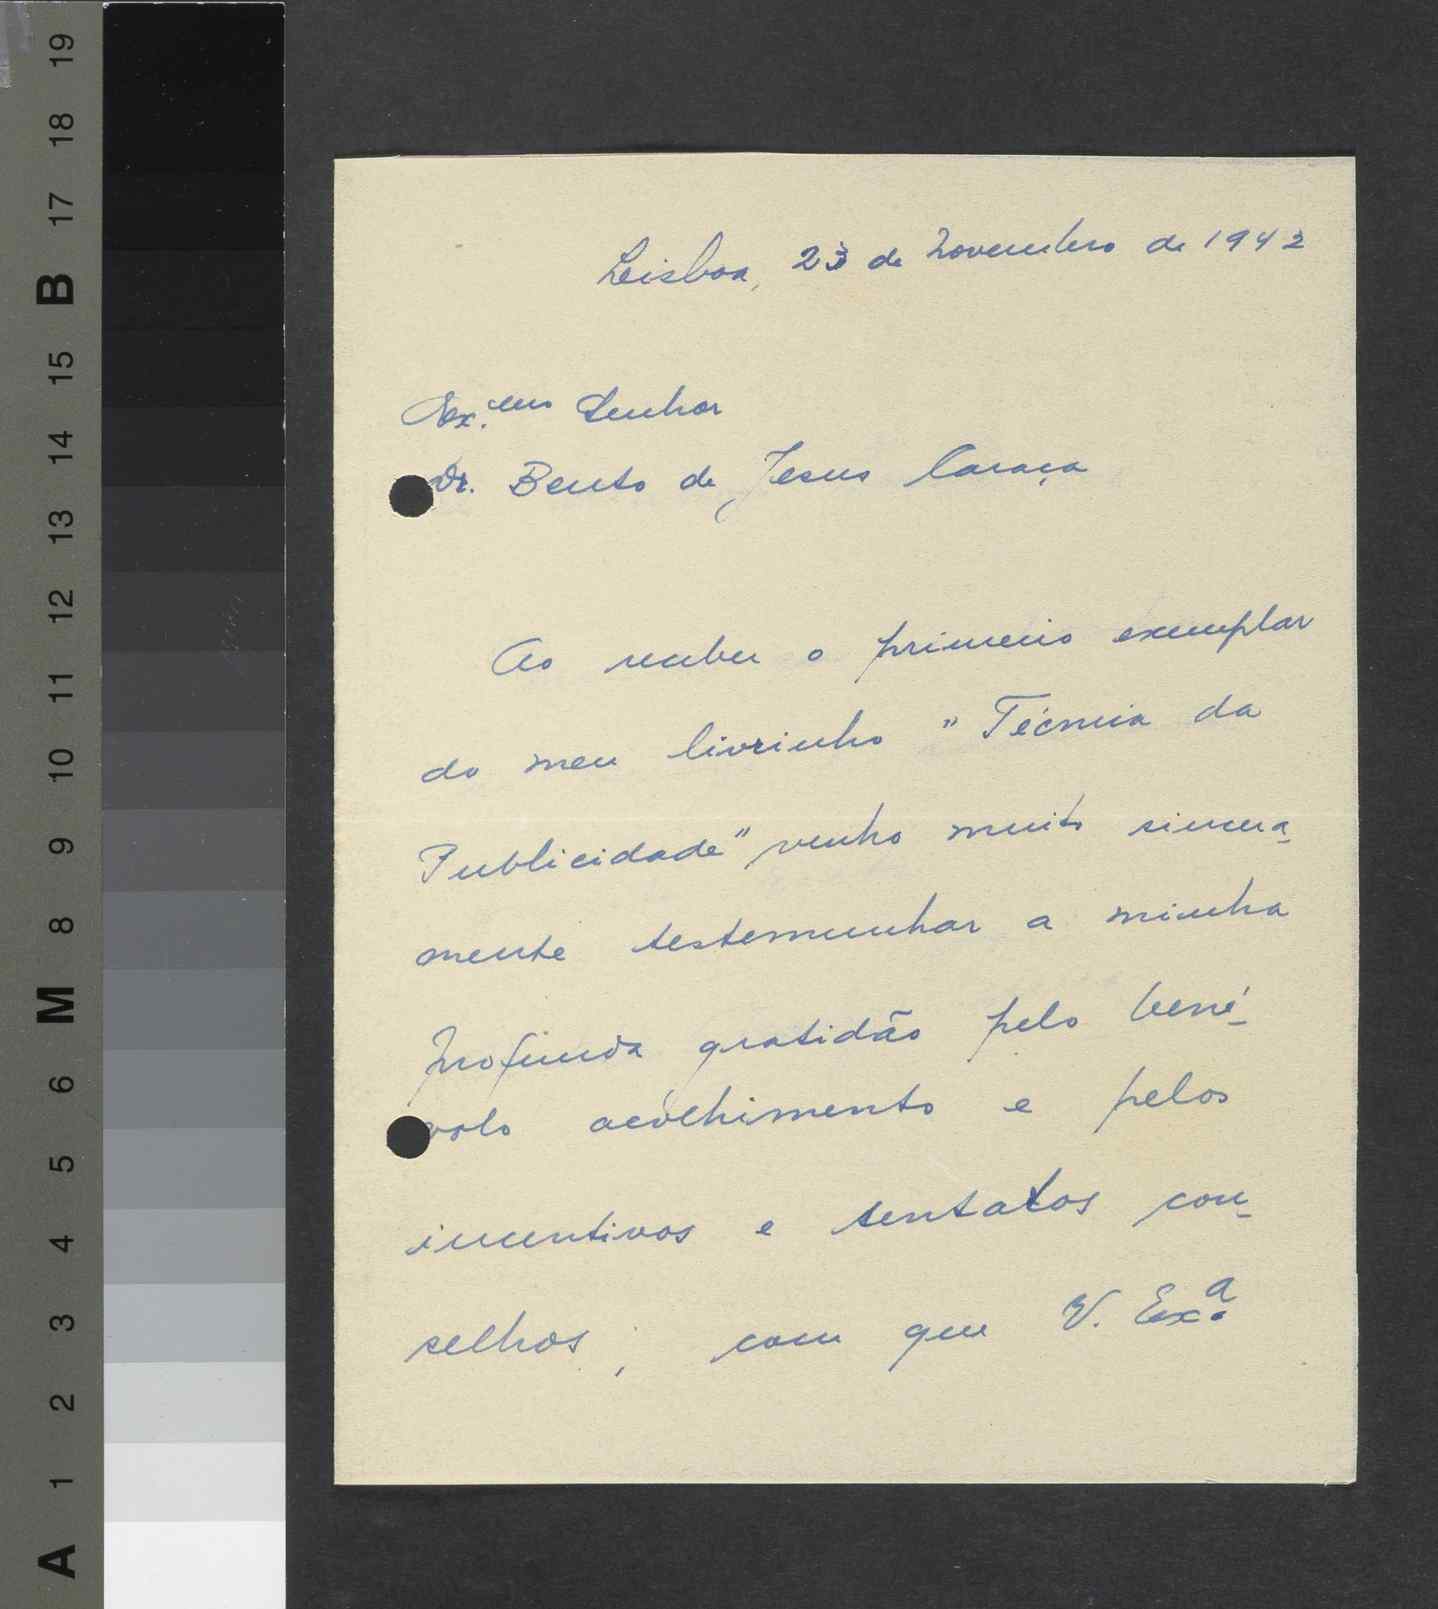 Lisboa, 23 de Novembro de 1942
Ex.mo Senhor
Dr. Bento de Jesus Caraça
Ao receber o primeiro exemplar
do meu livrinho "Técnica da
Publicidade" venho muito sincera-
mente testemunhar a minha
profunda gratidão pelo bené-
volo acolhimento e pelos
incentivos e sentatos con-
selhos, com que V. Ex.a
19
18
17
B
15
14
13
12
11
10
9
8
M
6
5
4
3
2
1
A